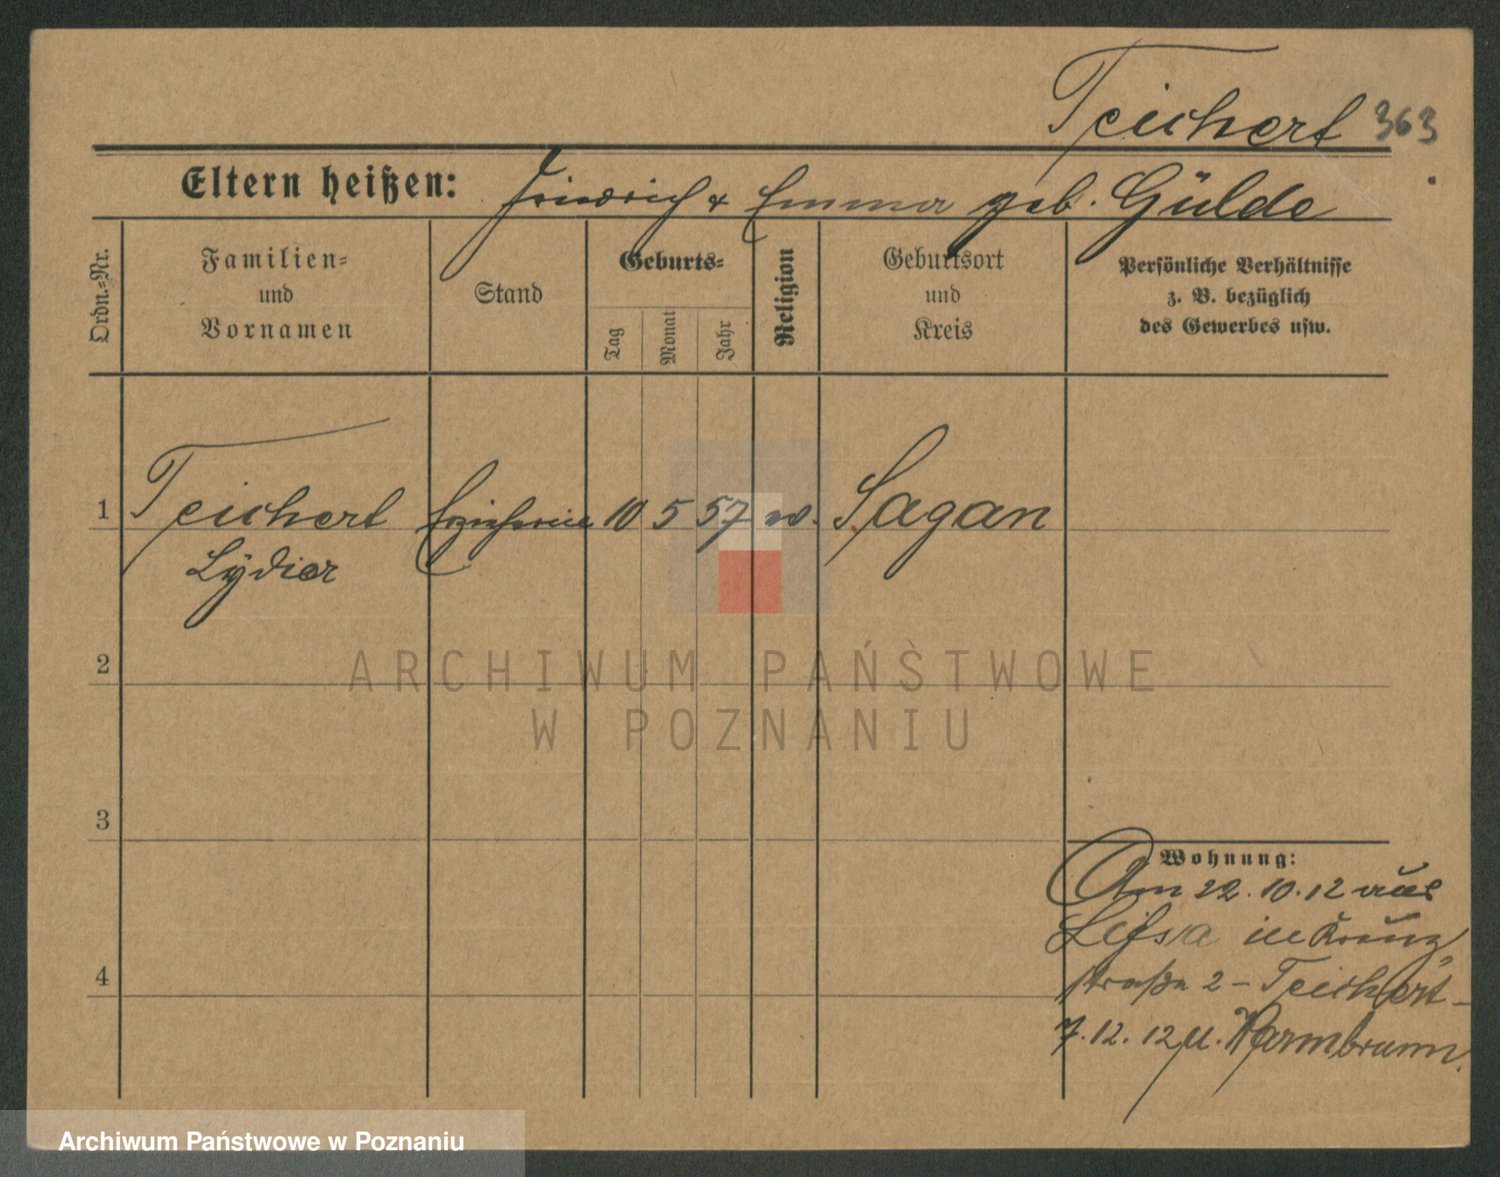 Teichert 363
Eltern heißen: Friedrich & Emma geb. Gülde
Ordn.-Nr.
Familien-
und
Vornamen
Stand
Geburts-
Tag
Monat
Jahr
Religion
Geburtsort
und
Kreis
Persönliche Verhältnisse
z. B. bezüglich
des Gewerbes usw.
1 Teichert Erzieherin 10 5 57 Sagan
Lydia
2
3
4
Wohnung:
Am 22.10.12 aus
Lissa in Kreuz
straße 2 – Teichert –
7.12.12 Warmbrunn.
ARCHIWUM PAŃSTWOWE
W POZNANIU
Archiwum Państwowe w Poznaniu